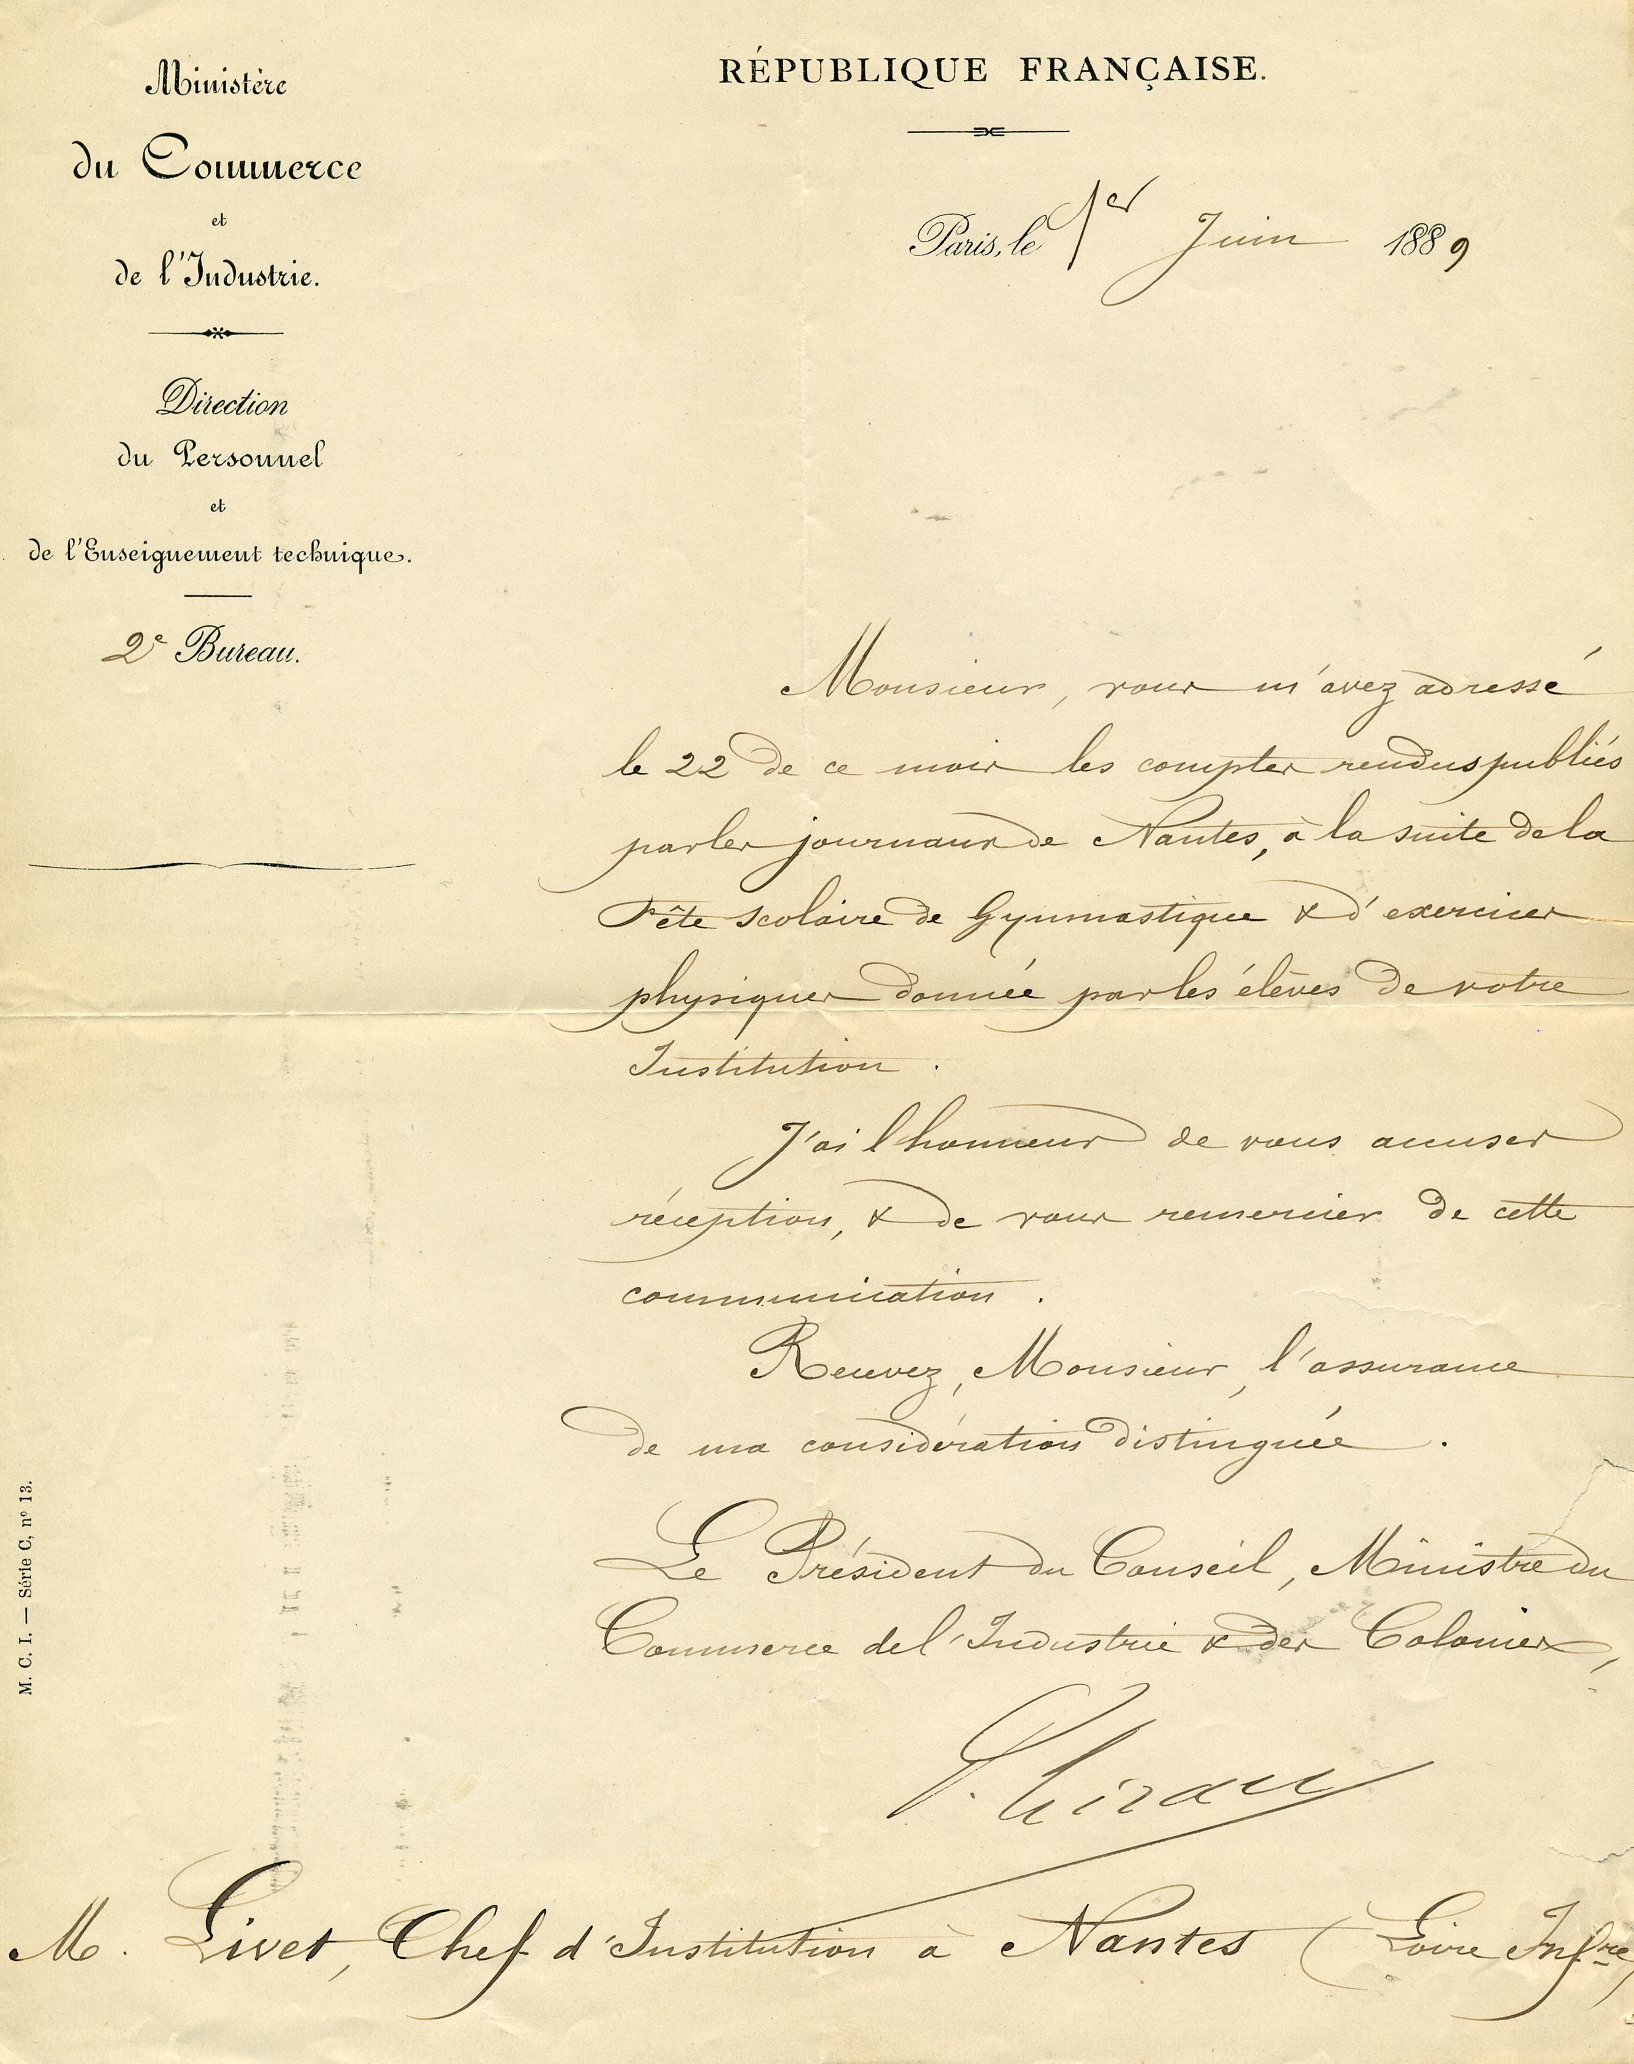 Ministère
du Commerce
et
de l'Industrie.
Direction
du Personnel
et
de l'Enseignement technique.
2e Bureau.
RÉPUBLIQUE FRANÇAISE.
Paris, le 1er Juin 1889
Monsieur, vous m'avez adressé
le 22 de ce mois les comptes rendus publiés
par les journaux de Nantes, à la suite de la
Fête scolaire de Gymnastique & d'exercices
physiques donnée par les élèves de votre
Institution.
J'ai l'honneur de vous accuser
réception, & de vous remercier de cette
communication.
Recevez, Monsieur, l'assurance
de ma considération distinguée.
Le Président du Conseil, Ministre du
Commerce de l'Industrie & des Colonies,
P. Tirard
M. Livet, Chef d'Institution à Nantes (Loire Infre)
M. C. I. — Série C, nº 13.